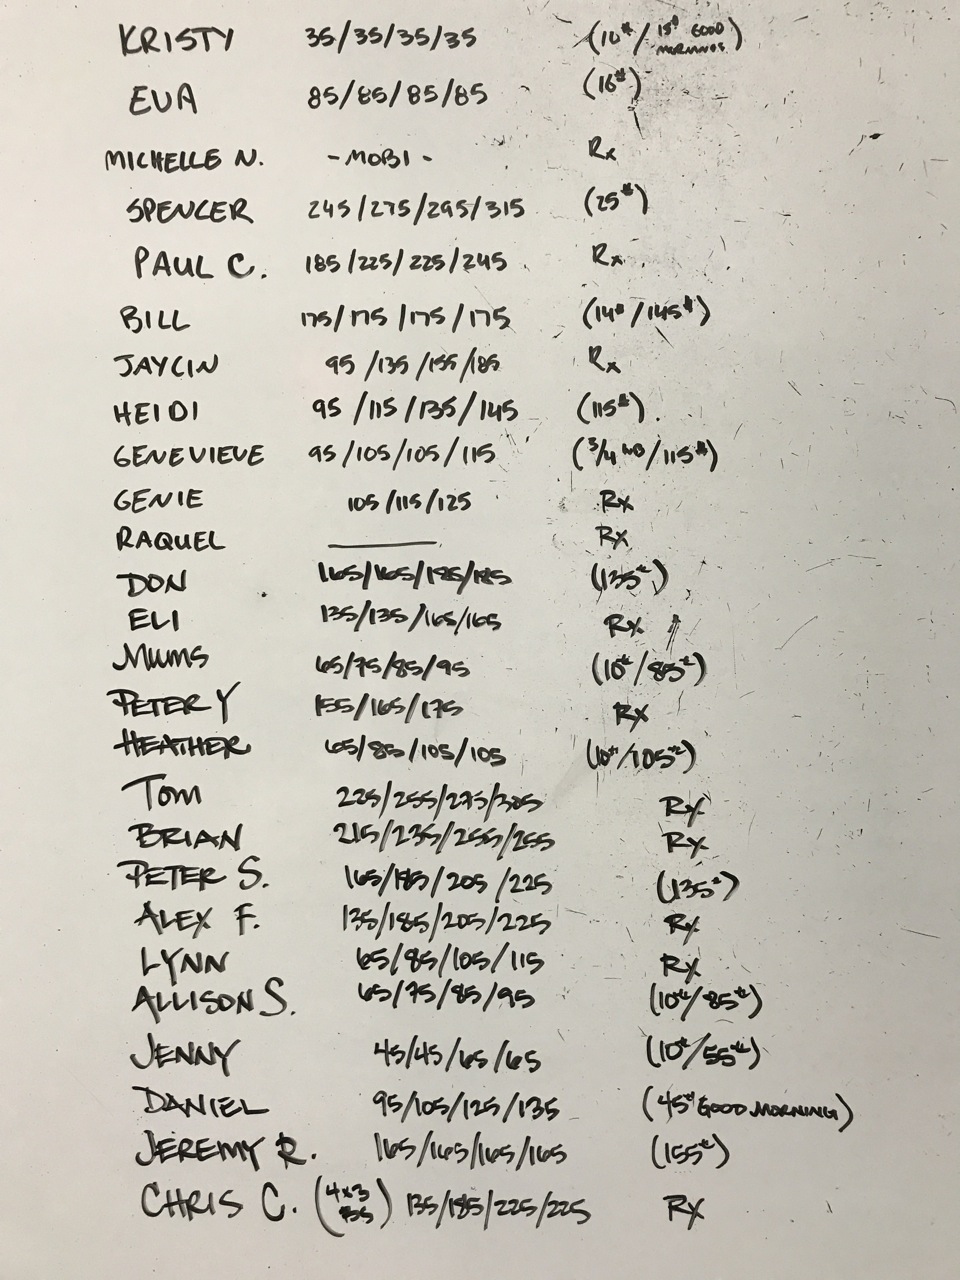 KRISTY 35/35/35/35 (10#/15# GOOD MORNINGS)
EVA 85/85/85/85 (16#)
MICHELLE N. -MOBI- Rx
SPENCER 245/275/295/315 (25#)
PAUL C. 185/225/225/245 Rx
BILL 175/175/175/175 (14#/145#)
JAYCIN 95/135/155/185 Rx
HEIDI 95/115/135/145 (115#)
GENEVIEVE 95/105/105/115 (3/4 /115#)
GENIE 105/115/125 RX
RAQUEL RX
DON 165/165/185/185 (135#)
ELI 135/135/165/165 RX
MUMS 65/75/85/95 (10#/85#)
PETER Y 155/165/175 RX
HEATHER 65/85/105/105 (10#/105#)
TOM 225/255/275/305 RX
BRIAN 215/235/255/255 RX
PETER S. 165/185/205/225 (135#)
ALEX F. 135/185/205/225 RX
LYNN 65/85/105/115 RX
ALLISON S. 65/75/85/95 (10#/85#)
JENNY 45/45/65/65 (10#/55#)
DANIEL 95/105/125/135 (45# GOOD MORNING)
JEREMY R. 165/165/165/165 (155#)
CHRIS C. (4x3 ) 135/185/225/225 RX